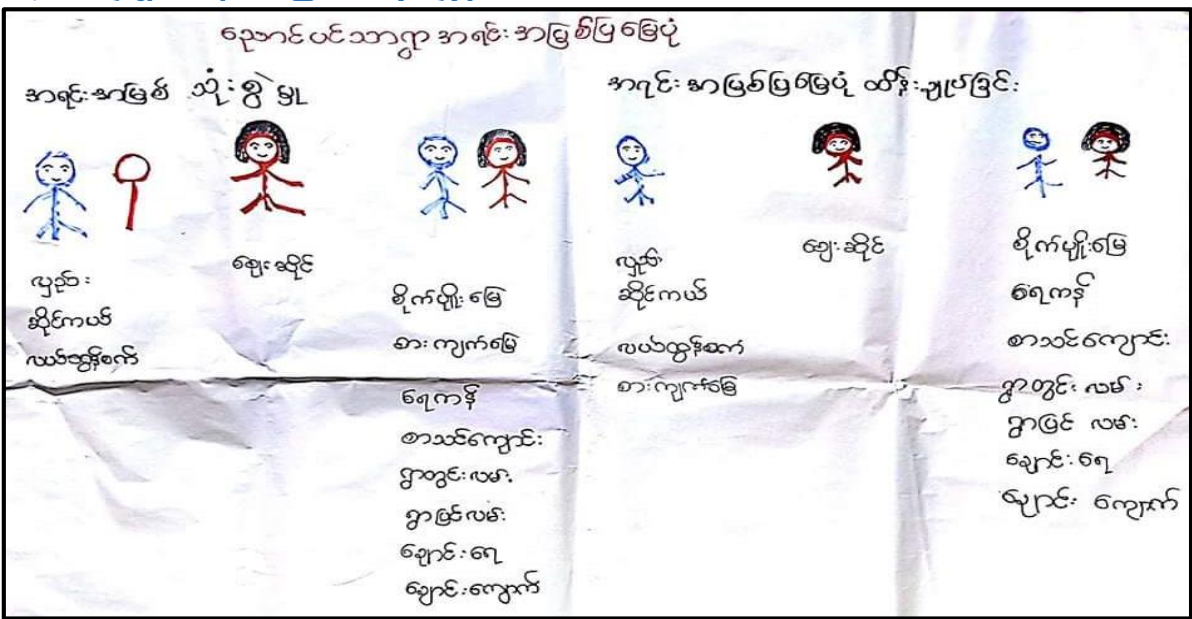 ညောင်ပင်သာရွာ အရင်းအမြစ်ပြမြေပုံ
အရင်းအမြစ် သုံးစွဲမှု
လှည်း
ဆိုင်ကယ်
လယ်ထွန်စက်
ဈေးဆိုင်
စိုက်ပျိုးမြေ
စားကျက်မြေ
ရေကန်
စာသင်ကျောင်း
ရွာတွင်းလမ်း
ရွာပြင်လမ်း
ချောင်းရေ
ချောင်းကျောက်
အရင်းအမြစ်ပြမြေပုံ ထိန်းချုပ်ခြင်း
လှည်း
ဆိုင်ကယ်
လယ်ထွန်စက်
စားကျက်မြေ
ဈေးဆိုင်
စိုက်ပျိုးမြေ
ရေကန်
စာသင်ကျောင်း
ရွာတွင်းလမ်း
ရွာပြင်လမ်း
ချောင်းရေ
ချောင်းကျောက်